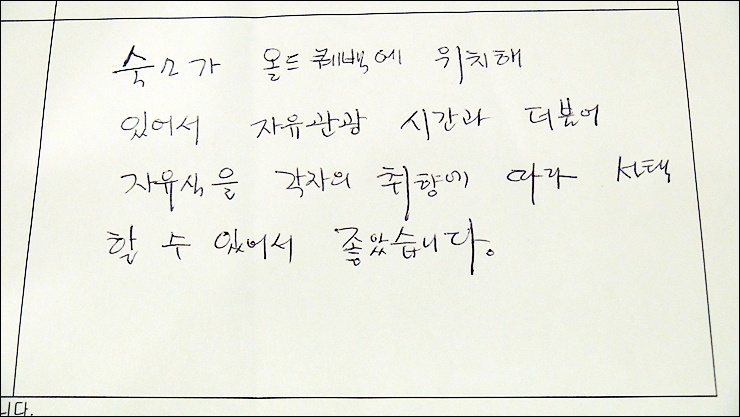 숙소가 올드퀘백에 위치해
있어서 자유관광 시간과 더불어
자유식을 각자의 취향에 따라 선택
할 수 있어서 좋았습니다.
니다.